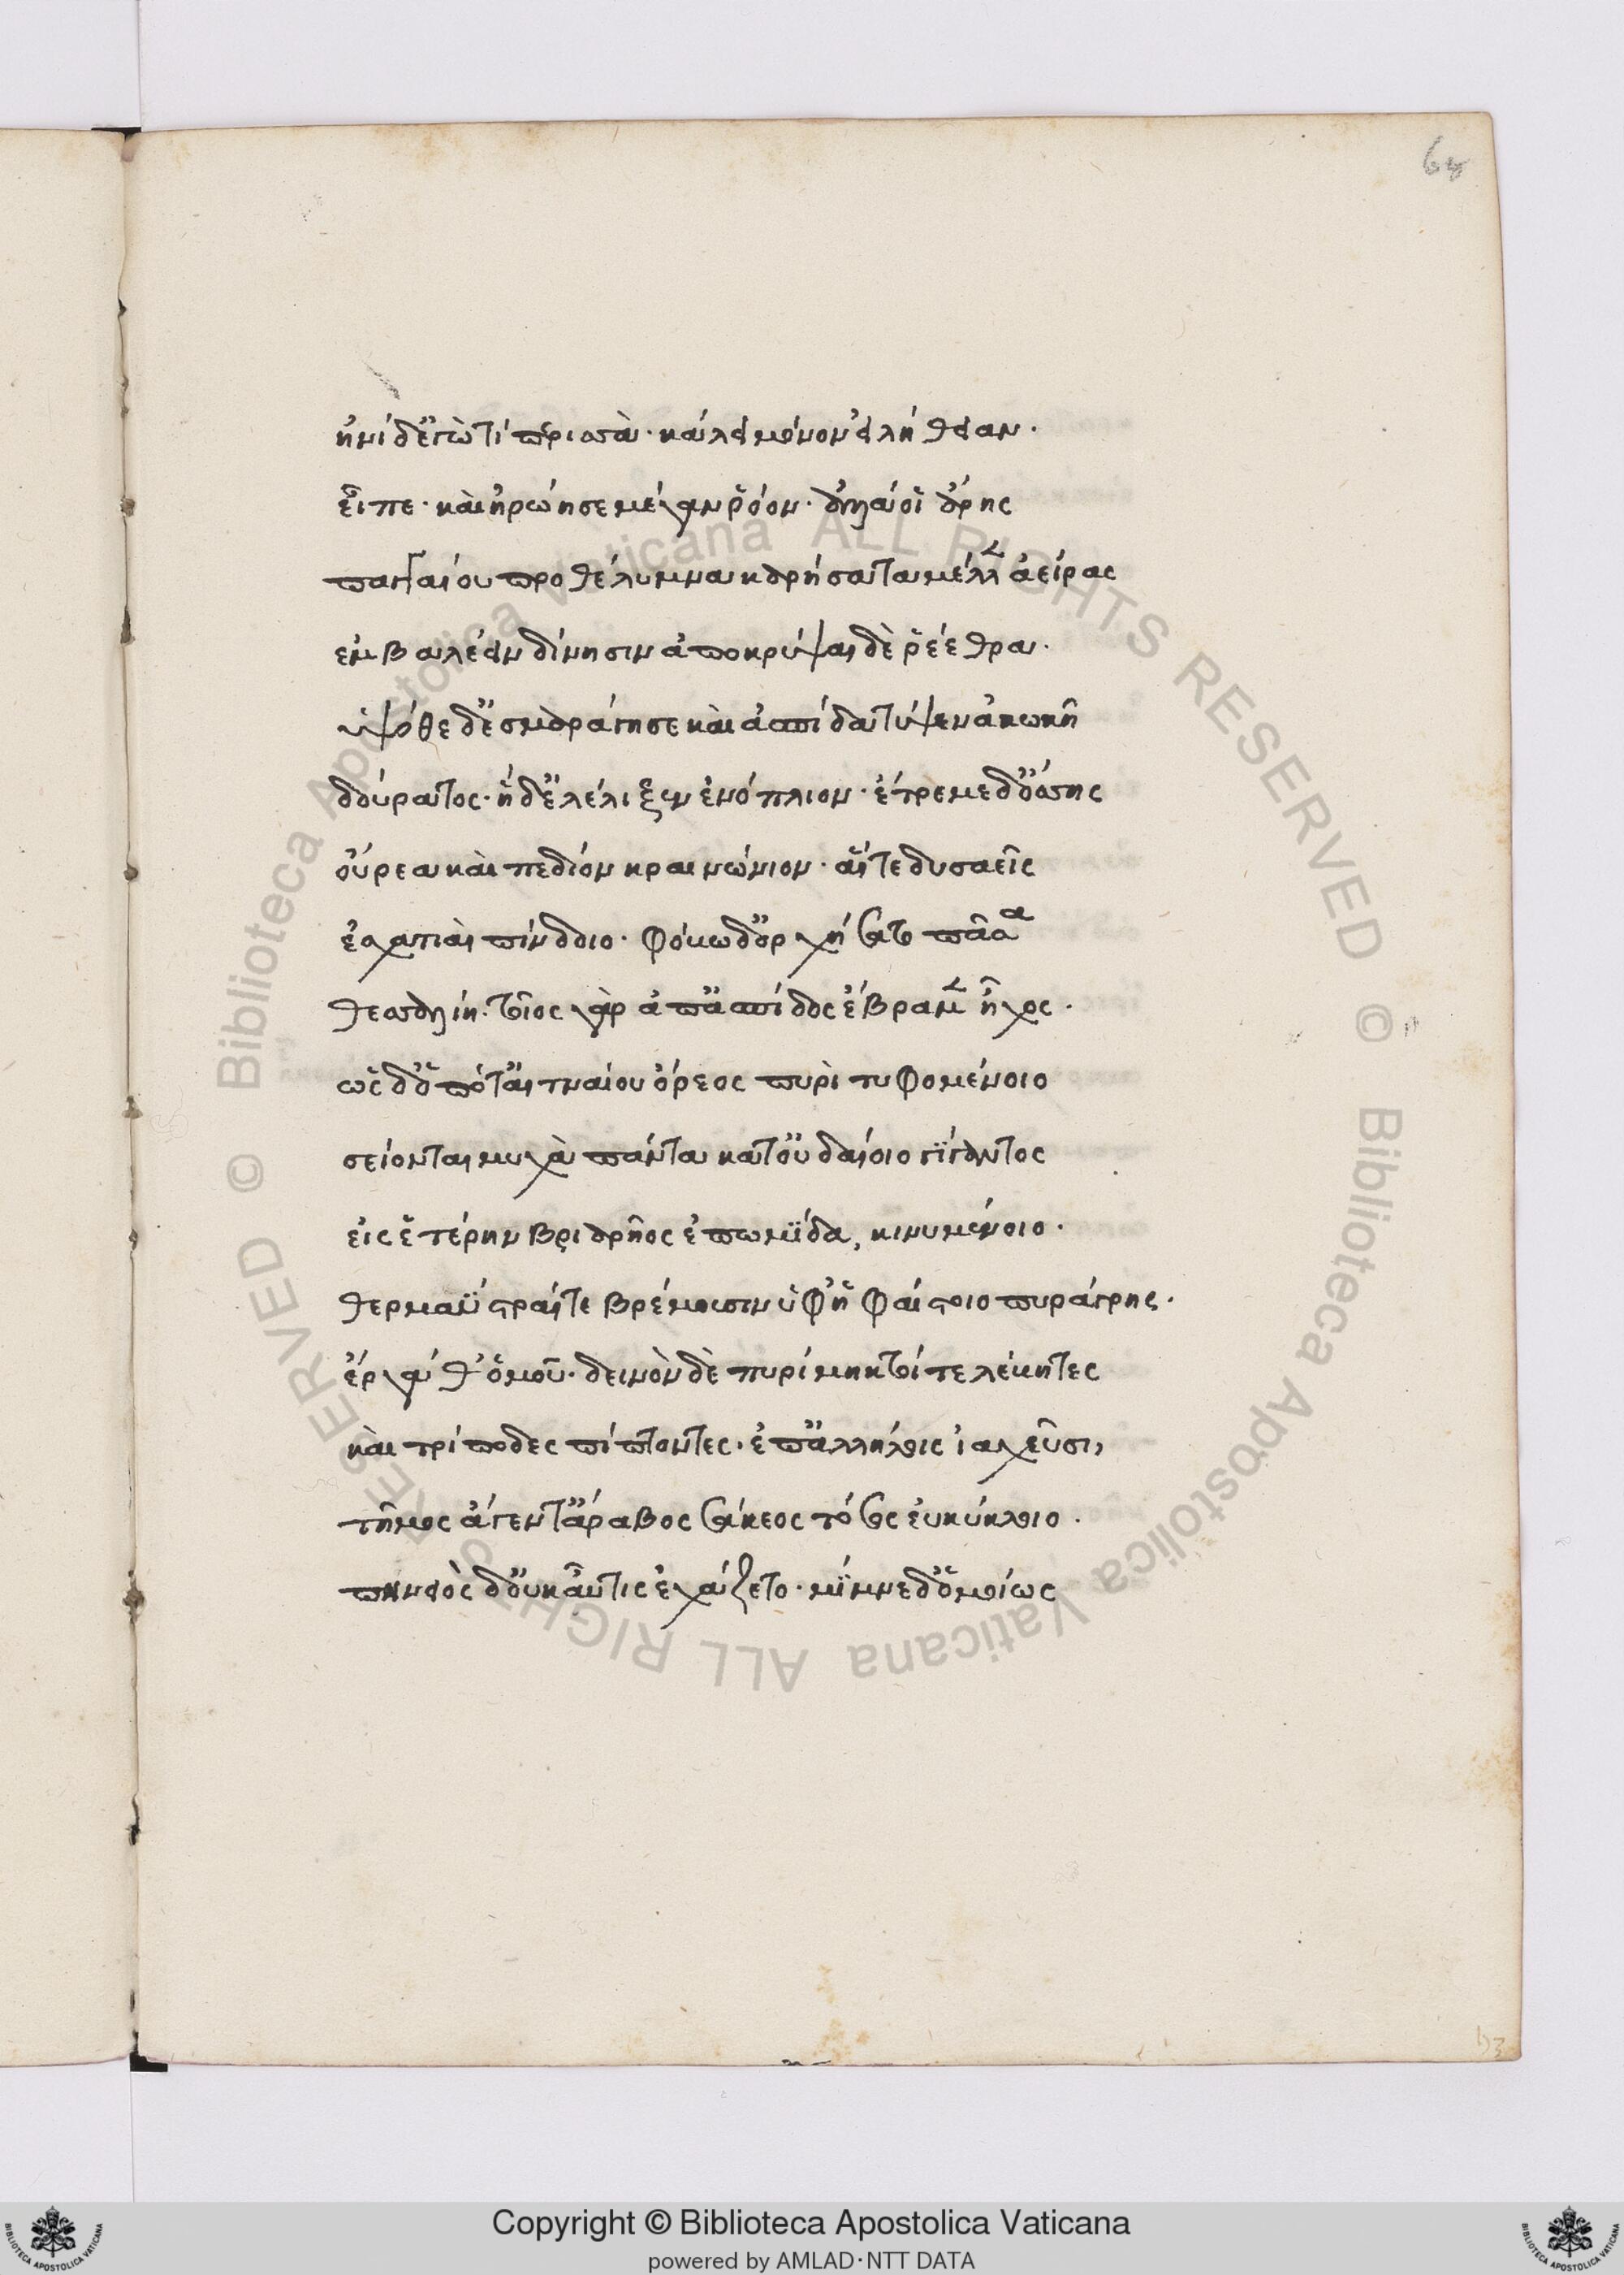 ἠνίδ' ἐγὼ τί περισσά· κάλει μόνον εἰλήθειαν.
εἶπε· καὶ ἠρώησε μέγαν ῥόον· ἀλλά οἱ ἄρης
παγγαίου προθέλυμνα καρήσατα μέλλεν ἀείρας
ἐμβαλέειν δίνησιν ἀποκρύψαι δὲ ῥέεθρα.
ὑψόθε δ' ἐσμαράγησε καὶ ἀσπίδα τύψεν ἀκωκῆ
δούρατος· ἡ δ' ἐλέλιξεν ἐνόπλιον· ἔτρεμε δ' ὄσσης
οὔρεα καὶ πεδίον κραννώνιον· αἵ τε δυσαεῖς
ἐσχατιαὶ πίνδοιο· φόβω δ' ὀρχήσατο πᾶσα
θεσσαλίη· τοῖος γὰρ ἀπ' ἀσπίδος ἔβραμεν ἦχος.
ὡς δ' ὁπότ' αἰτναίου ὄρεος πυρὶ τυφομένοιο
σείονται μυχὰ πάντα κατ' οὐδαίοιο γίγαντος
εἰς ἑτέρην βριαρῆος ἐπωμίδα, κινυμένοιο.
θερμαΰστραι τε βρέμουσιν ὑφ' ἡφαίστοιο πυράγρης.
ἔργα θ' ὁμοῦ· δεινὸν δὲ πυρίμηκτοί τε λέβητες
καὶ τρίποδες πίπτοντες· ἐπ' ἀλλήλοις ἰαχεῦσι,
τῆμος ἄγεντ' ἄραβος σάκεος τόσος εὐκύκλοιο.
πηνειὸς δ' οὐκ αὖτις ἐχάζετο· μίμνε δ' ὁμοίως
Copyright © Biblioteca Apostolica Vaticana
powered by AMLAD·NTT DATA